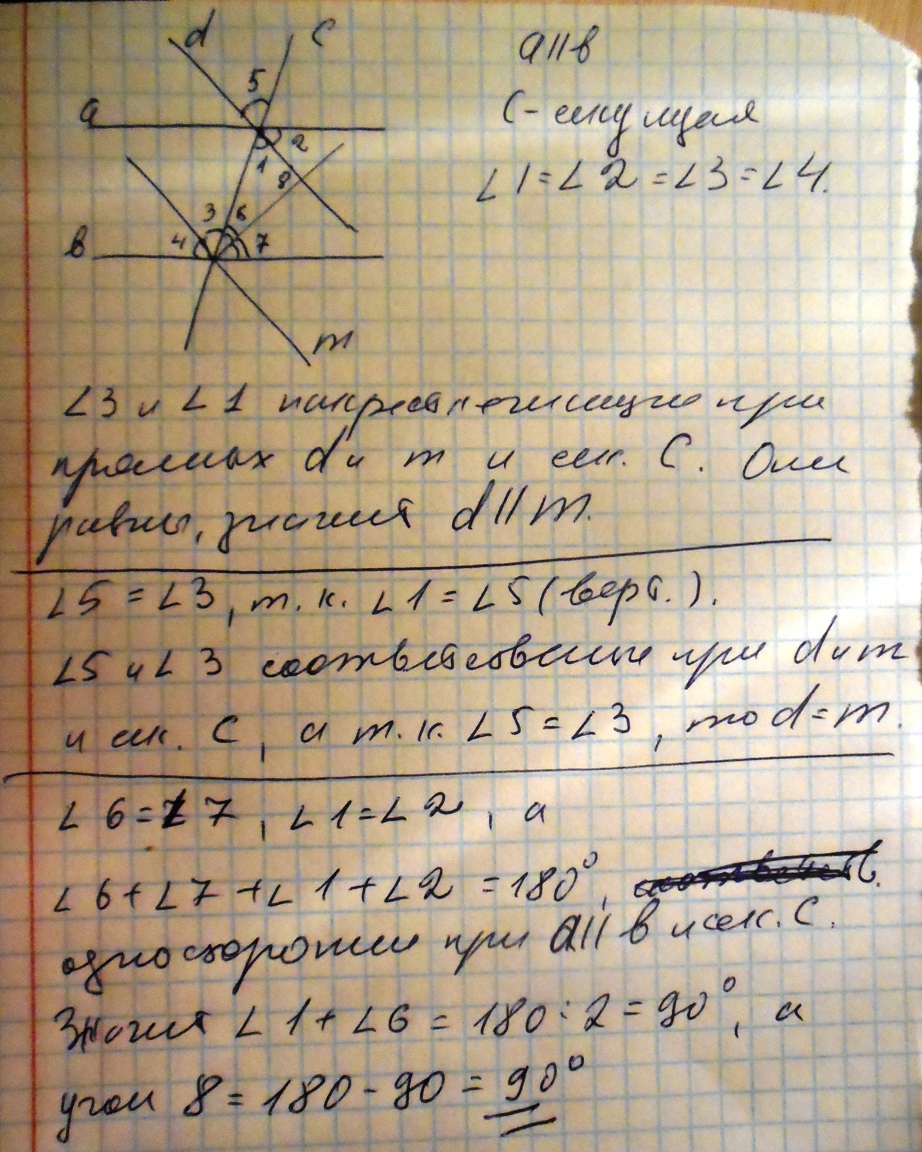 d c
5
a
2
1
8
3 6
4 7
в
m
a||в
С - секущая
∠1=∠2=∠3=∠4.
∠3 и ∠1 накрест лежащие при
прямых d и m и сек. С. Они
равны, значит d||m.
∠5=∠3, т.к. ∠1=∠5 (верт.).
∠5 и ∠3 соответственные при d и m
и сек. С, а т.к. ∠5=∠3, то d=m.
∠6=∠7, ∠1=∠2, а
∠6+∠7+∠1+∠2=180°,
односторонние при a||в и сек. С.
Значит ∠1+∠6=180:2=90°, а
угол 8=180-90=90°